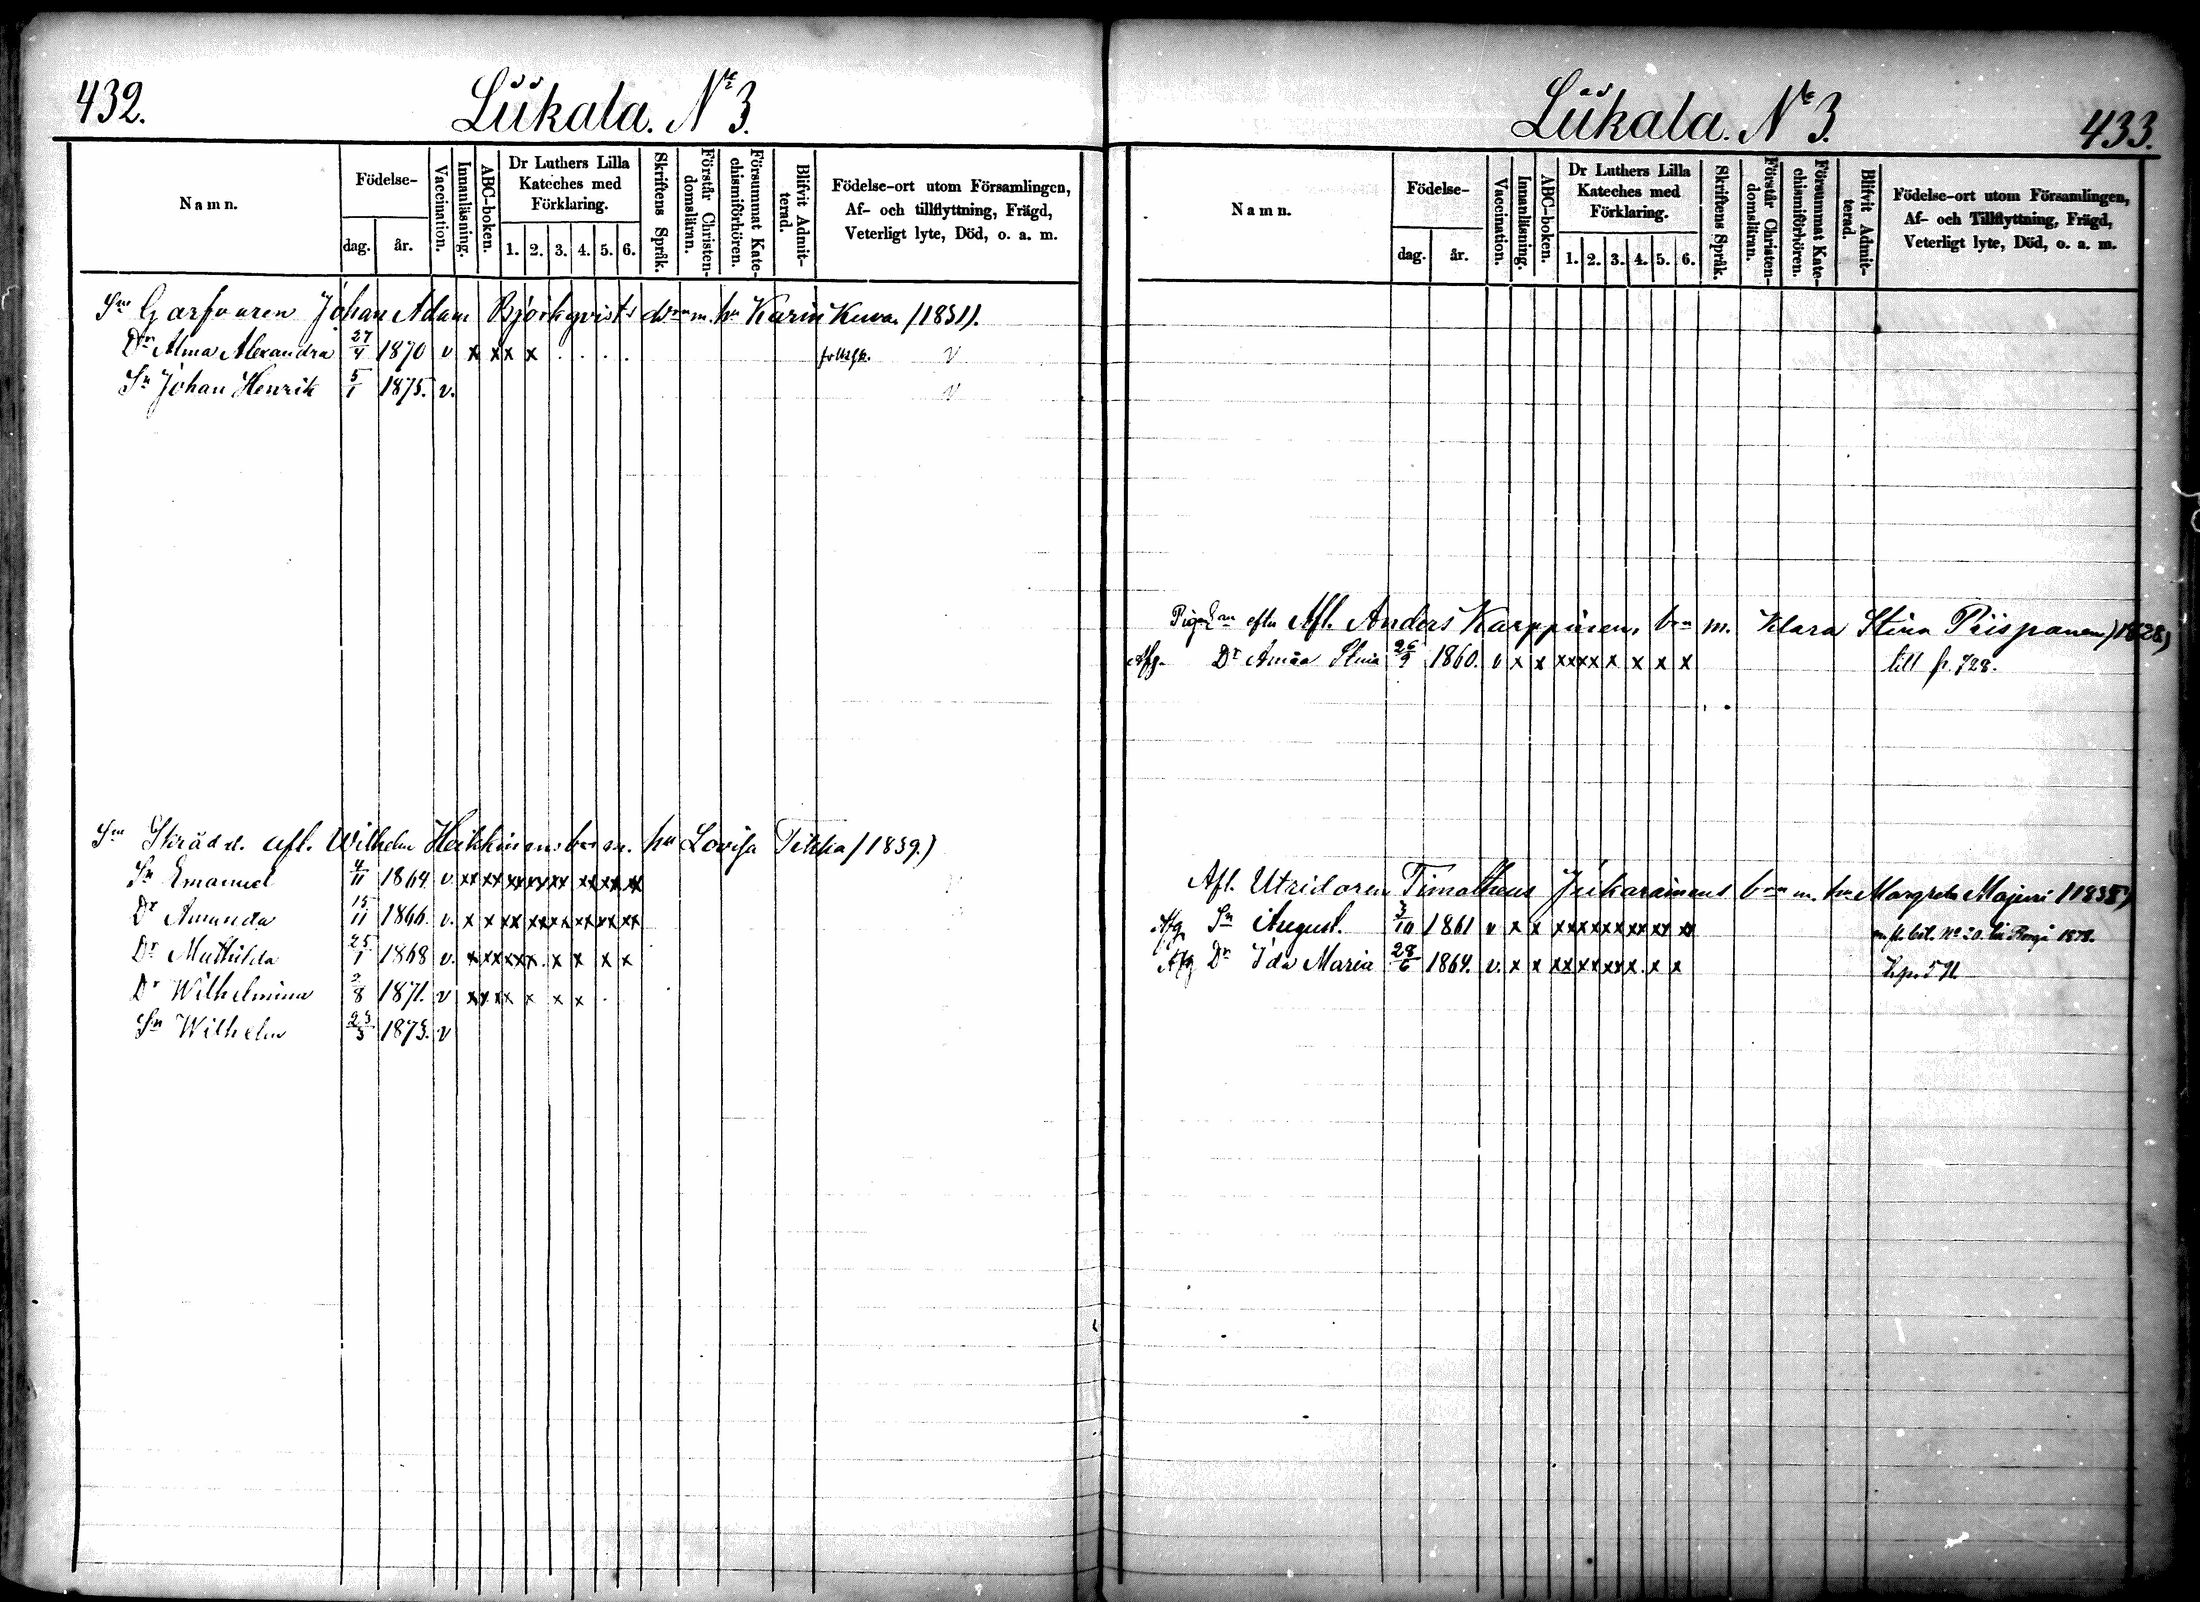 432.
Liikala. No 3.
Namn.
Födelse-
dag.
år.
Vaccination.
Innanläsning.
ABC-boken.
Dr Luthers Lilla
Kateches med
Förklaring.
1. 2. 3. 4. 5. 6.
Skriftens Språk.
Förstår Christen-
domsläran.
Försummat Kate-
chismiförhören.
Blifvit Admit-
terad.
Födelse-ort utom Församlingen,
Af- och tillflyttning, Frägd,
Veterligt lyte, Död, o. a. m.
Garfvaren Johan Adam Björkqvists m. hu Karin Kuva (1851).
Dr Alma Alexandra 27/4 1870 v x xx x . . . . v
Sn Johan Henrik 5/1 1875. v. v
Skrädd. afl. Wilhelm Heikkinens bn m. hu Lovisa (1839.)
Sn Emanuel 4/11 1864 v xx xx xx xx xx xx xx
Dr Amanda 15/11 1866. v. x x xx xx xx xx xx
Dr Mathilda 25/1 1868 v. xx xx xx. x x x x
Dr Wilhelmina 2/8 1871. v xx xx x x x .
Sn Wilhelm 23/3 1873. v
Liikala. No 3.
433.
Namn.
Födelse-
dag.
år.
Vaccination.
Innanläsning.
ABC-boken.
Dr Luthers Lilla
Kateches med
Förklaring.
1. 2. 3. 4. 5. 6.
Skriftens Språk.
Förstår Christen-
domsläran.
Försummat Kate-
chismiförhören.
Blifvit Admit-
terad.
Födelse-ort utom Församlingen,
Af- och Tillflyttning, Frägd,
Veterligt lyte, Död, o. a. m.
Afl. Anders Karppinens bn m. Klara Stina Piispanen (1828)
Afg. Dr Stina 26/9 1860. v x x xx xx x x x x till p. 728.
Afl. Utridaren Timotheus Jukarainens bn m. hu Margreta Majuri (1835)
Afg. Sn August. 3/10 1861 v x x xx xx xx xx xx xx No 20. Borgå 1878.
Afg Dr Ida Maria 28/6 1864. v. x x xx xx xx x. x x